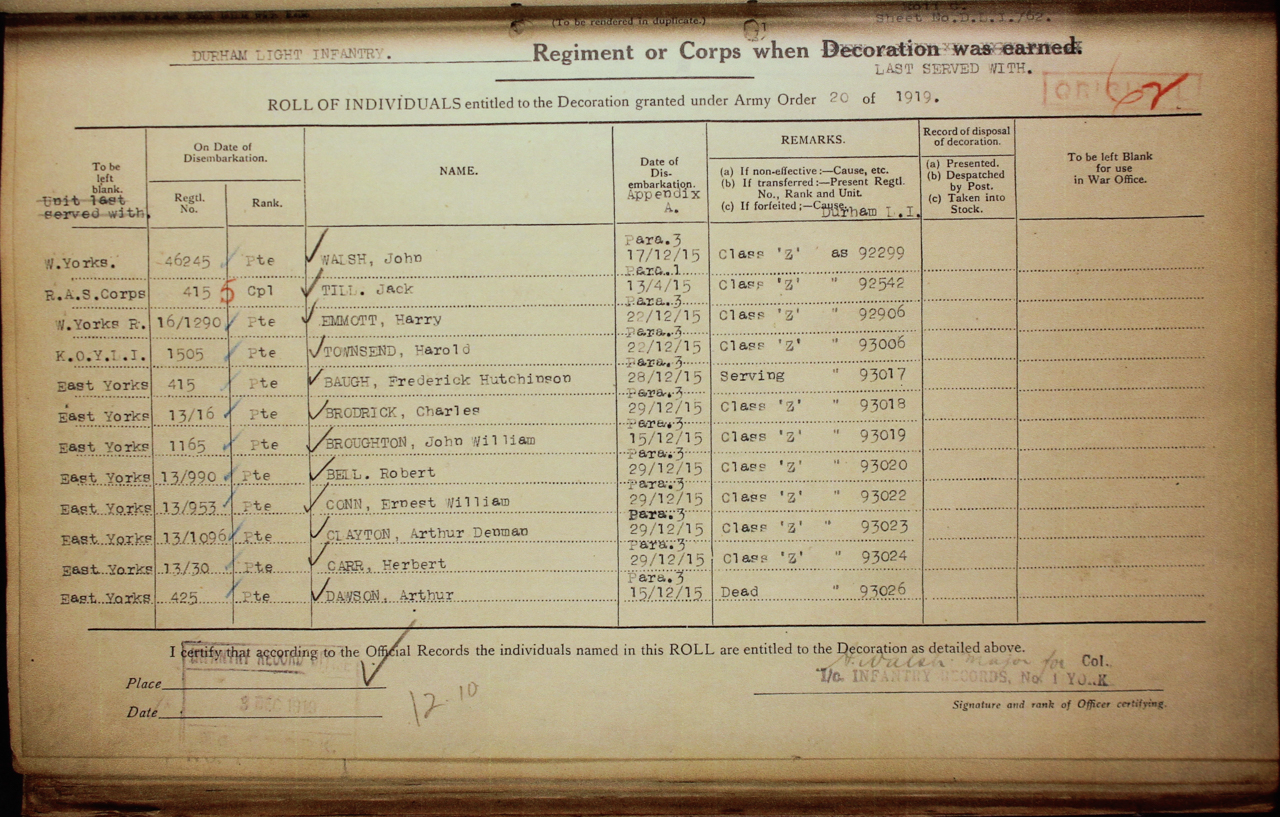 (To be rendered in duplicate.)
Sheet No.D.L.I./62.
DURHAM LIGHT INFANTRY. Regiment or Corps when Decoration was earned.
LAST SERVED WITH.
ROLL OF INDIVIDUALS entitled to the Decoration granted under Army Order 20 of 1919.
To be left blank.
Unit last served with.
On Date of Disembarkation.
Regtl. No.
Rank.
NAME.
Date of Dis-embarkation.
Appendix A.
REMARKS.
(a) If non-effective:—Cause, etc.
(b) If transferred:—Present Regtl. No., Rank and Unit.
(c) If forfeited;—Cause.
Durham L.I.
Record of disposal of decoration.
(a) Presented.
(b) Despatched by Post.
(c) Taken into Stock.
To be left Blank for use in War Office.
Para.3
W.Yorks. 46245 Pte WALSH, John 17/12/15 Class 'Z' as 92299
Para.1
R.A.S.Corps 415 5 Cpl TILL. Jack 13/4/15 Class 'Z' " 92542
Para.3
W.Yorks R. 16/1290 Pte EMMOTT, Harry 22/12/15 Class 'Z' " 92906
Para.3
K.O.Y.L.I. 1505 Pte TOWNSEND, Harold 22/12/15 Class 'Z' " 93006
Para.3
East Yorks 415 Pte BAUGH, Frederick Hutchinson 28/12/15 Serving " 93017
Para.3
East Yorks 13/16 Pte BRODRICK, Charles 29/12/15 Class 'Z' " 93018
Para.3
East Yorks 1165 Pte BROUGHTON, John William 15/12/15 Class 'Z' " 93019
Para.3
East Yorks 13/990 Pte BELL. Robert 29/12/15 Class 'Z' " 93020
Para.3
East Yorks 13/953 Pte CONN, Ernest William 29/12/15 Class 'Z' " 93022
Para.3
East Yorks 13/1096 Pte CLAYTON, Arthur Denman 29/12/15 Class 'Z' " 93023
Para.3
East Yorks 13/30 Pte CARR, Herbert 29/12/15 Class 'Z' " 93024
Para.3
East Yorks 425 Pte DAWSON, Arthur 15/12/15 Dead " 93026
I certify that according to the Official Records the individuals named in this ROLL are entitled to the Decoration as detailed above.
INFANTRY RECORD
A. Walsh Major for Col.
Place
I/c. INFANTRY RECORDS, No. 1 YORK
Date
3 DEC 1919
12.10
Signature and rank of Officer certifying.